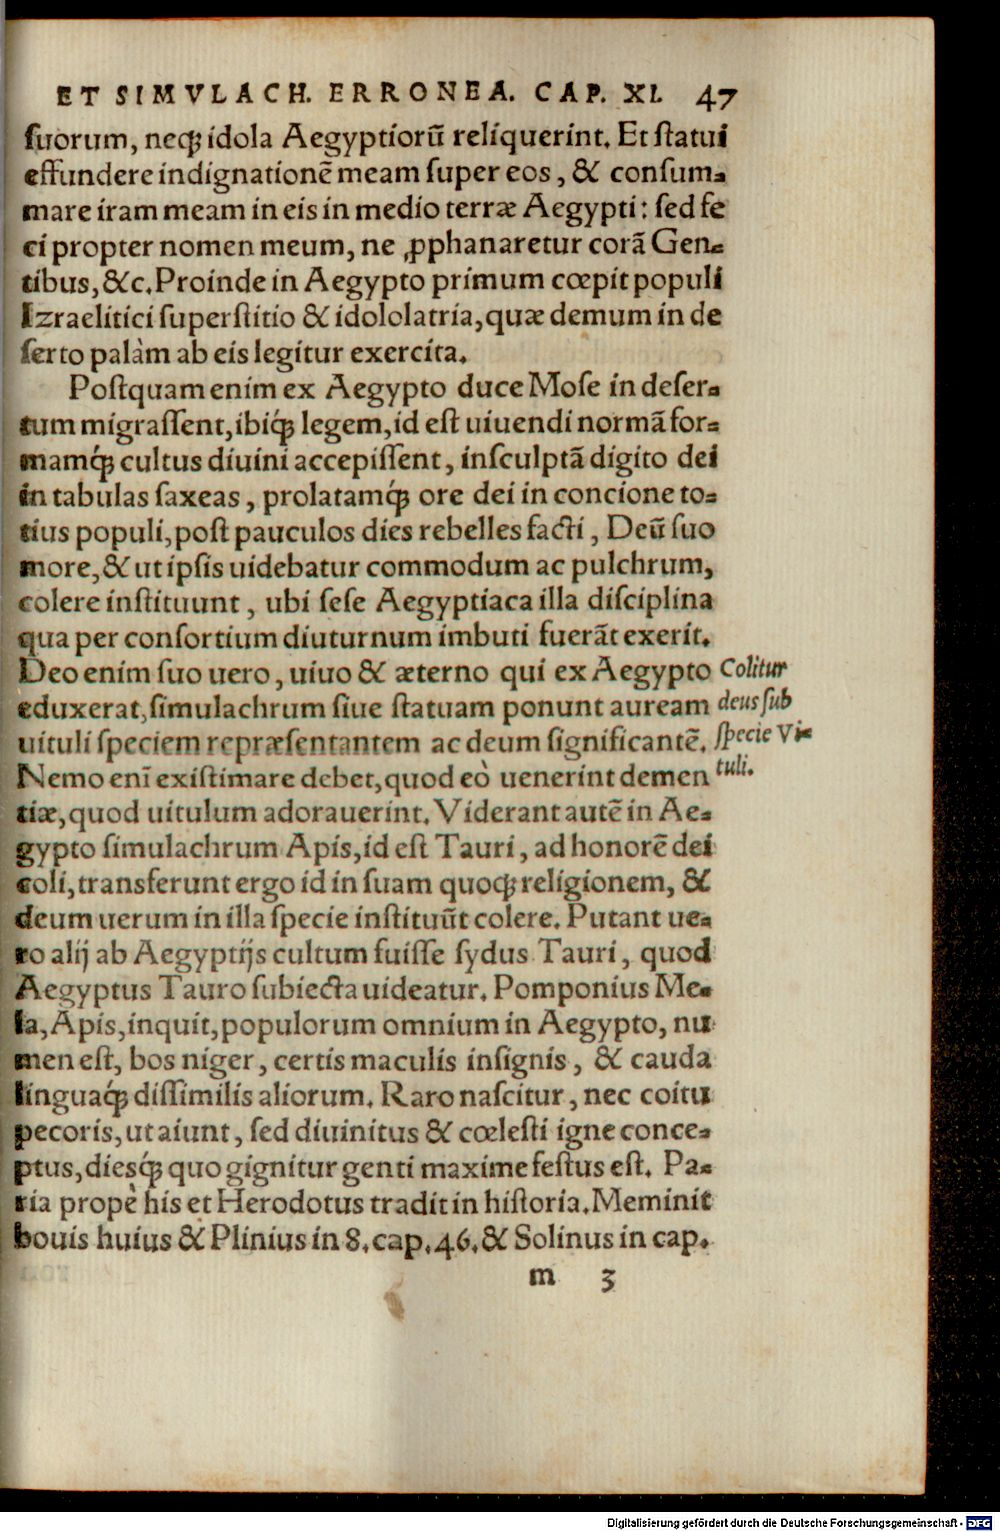 ET SIMVLACH. ERRONEA. CAP. XI. 47
ſuorum, neqꝫ idola Aegyptiorū reliquerint. Et ſtatui
effundere indignationē meam ſuper eos, & conſum-
mare iram meam in eis in medio terræ Aegypti: ſed fe
ci propter nomen meum, ne ꝓphanaretur corā Gen-
tibus, &c. Proinde in Aegypto primum cœpit populi
Izraelitici ſuperſtitio & idololatria, quæ demum in de
ſerto palàm ab eis legitur exercita.
Poſtquam enim ex Aegypto duce Moſe in deſer-
tum migraſſent, ibiq́ꝫ legem, id eſt uiuendi normā for-
mamq́ꝫ cultus diuini accepiſſent, inſculptā digito dei
in tabulas ſaxeas, prolatamq́ꝫ ore dei in concione to-
tius populi, poſt pauculos dies rebelles facti, Deū ſuo
more, & ut ipſis uidebatur commodum ac pulchrum,
colere inſtituunt, ubi ſeſe Aegyptiaca illa diſciplina
qua per conſortium diuturnum imbuti fuerāt exerit.
Deo enim ſuo uero, uiuo & æterno qui ex Aegypto
eduxerat, ſimulachrum ſiue ſtatuam ponunt auream
uituli ſpeciem repræſentantem ac deum ſignificantē.
Colitur
deus ſub
ſpecie Vi-
tuli.
Nemo enī exiſtimare debet, quod eò uenerint demen
tiæ, quod uitulum adorauerint. Viderant autē in Ae-
gypto ſimulachrum Apis, id eſt Tauri, ad honorē dei
coli, transferunt ergo id in ſuam quoqꝫ religionem, &
deum uerum in illa ſpecie inſtituūt colere. Putant ue-
ro alij ab Aegyptijs cultum fuiſſe ſydus Tauri, quod
Aegyptus Tauro ſubiecta uideatur. Pomponius Me-
la, Apis, inquit, populorum omnium in Aegypto, nu
men eſt, bos niger, certis maculis inſignis, & cauda
linguaq́ꝫ diſſimilis aliorum. Raro naſcitur, nec coitu
pecoris, ut aiunt, ſed diuinitus & cœleſti igne conce-
ptus, diesq́ꝫ quo gignitur genti maxime feſtus eſt. Pa-
ria propè his et Herodotus tradit in hiſtoria. Meminit
bouis huius & Plinius in 8. cap. 46. & Solinus in cap.
m 3
Digitalisierung gefördert durch die Deutsche Forschungsgemeinschaft - DFG